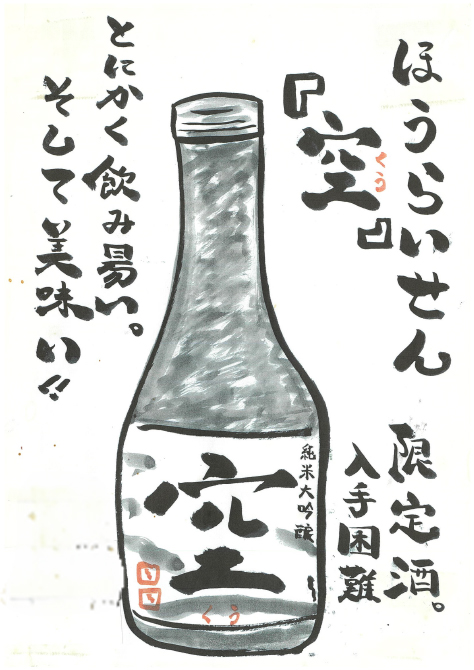 ほうらいせん
『空』
くう
限定酒。
入手困難
とにかく飲み易い。
そして美味い!!
純米大吟醸
空
くう